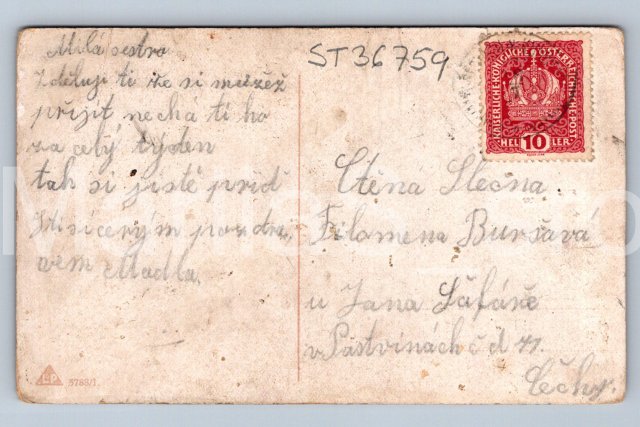 Milá sestro
Zděluji ti že si mužěž
přijít nechá ti ho
za celý týden
tak si jistě přid
S tisícerým pozdra,
vem Madla.
ST36759
KAISERLICHE KÖNIGLICHE ÖSTERREICHISCHE POST
HEL 10 LER
Ctěna Slecna
Filomena Buršavá
u Jana Šafáře
v Pastvinách č d 41.
Čechy.
LP 5768/1.